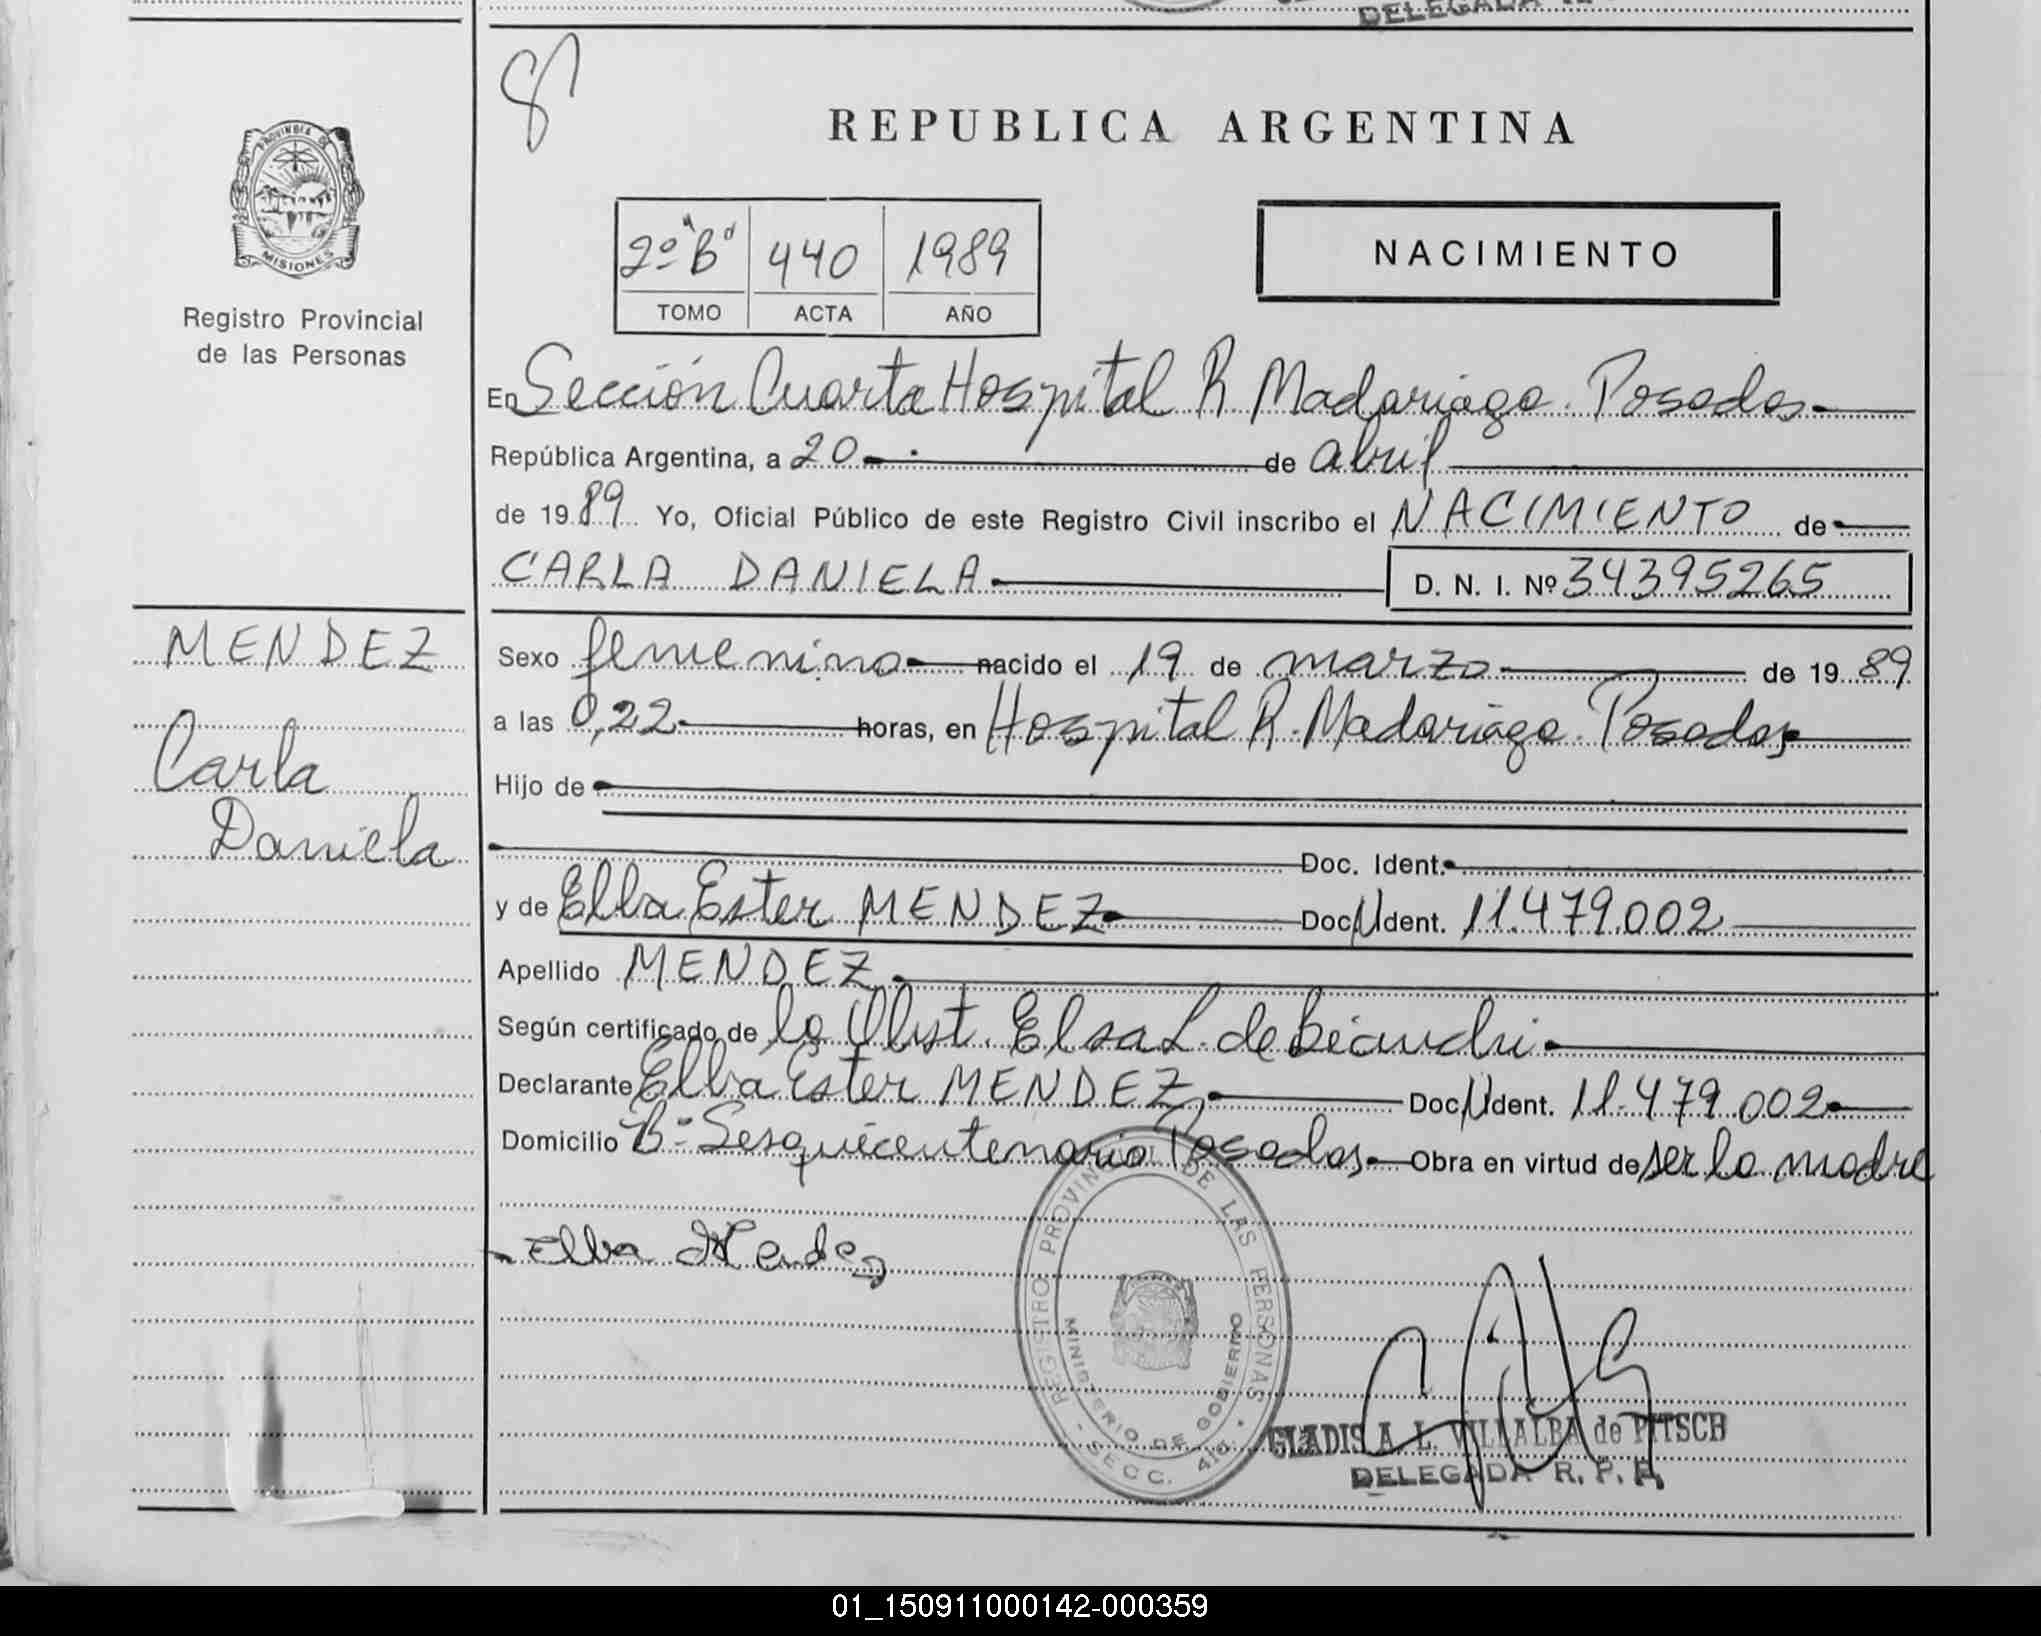 DELEGADA
REPUBLICA ARGENTINA
PROVINCIA DE
MISIONES
Registro Provincial
de las Personas
2º "B" 440 1989
TOMO ACTA AÑO
NACIMIENTO
En Sección Cuarta Hospital R Madariaga. Posadas
República Argentina, a 20 de abril
de 1989 Yo, Oficial Público de este Registro Civil inscribo el NACIMIENTO de
CARLA DANIELA D. N. I. Nº 34395265
MENDEZ
Carla
Daniela
Sexo femenino nacido el 19 de marzo de 1989
a las 0,22 horas, en Hospital R. Madariaga. Posadas
Hijo de
Doc. Ident.
y de Elba Ester MENDEZ Doc N Ident. 11.479.002
Apellido MENDEZ
Según certificado de la Obst. Elsa L. de
Declarante Elba Ester MENDEZ Doc N Ident. 11.479.002
Domicilio Bº Sesquicentenario Posadas. Obra en virtud de ser la madre
Elba Mendez
REGISTRO PROVINCIAL DE LAS PERSONAS
MINISTERIO DE GOBIERNO
- SECC. 4ta -
GLADIS A. L. VILLALBA de PITSCH
DELEGADA R. P. P.
01_150911000142-000359